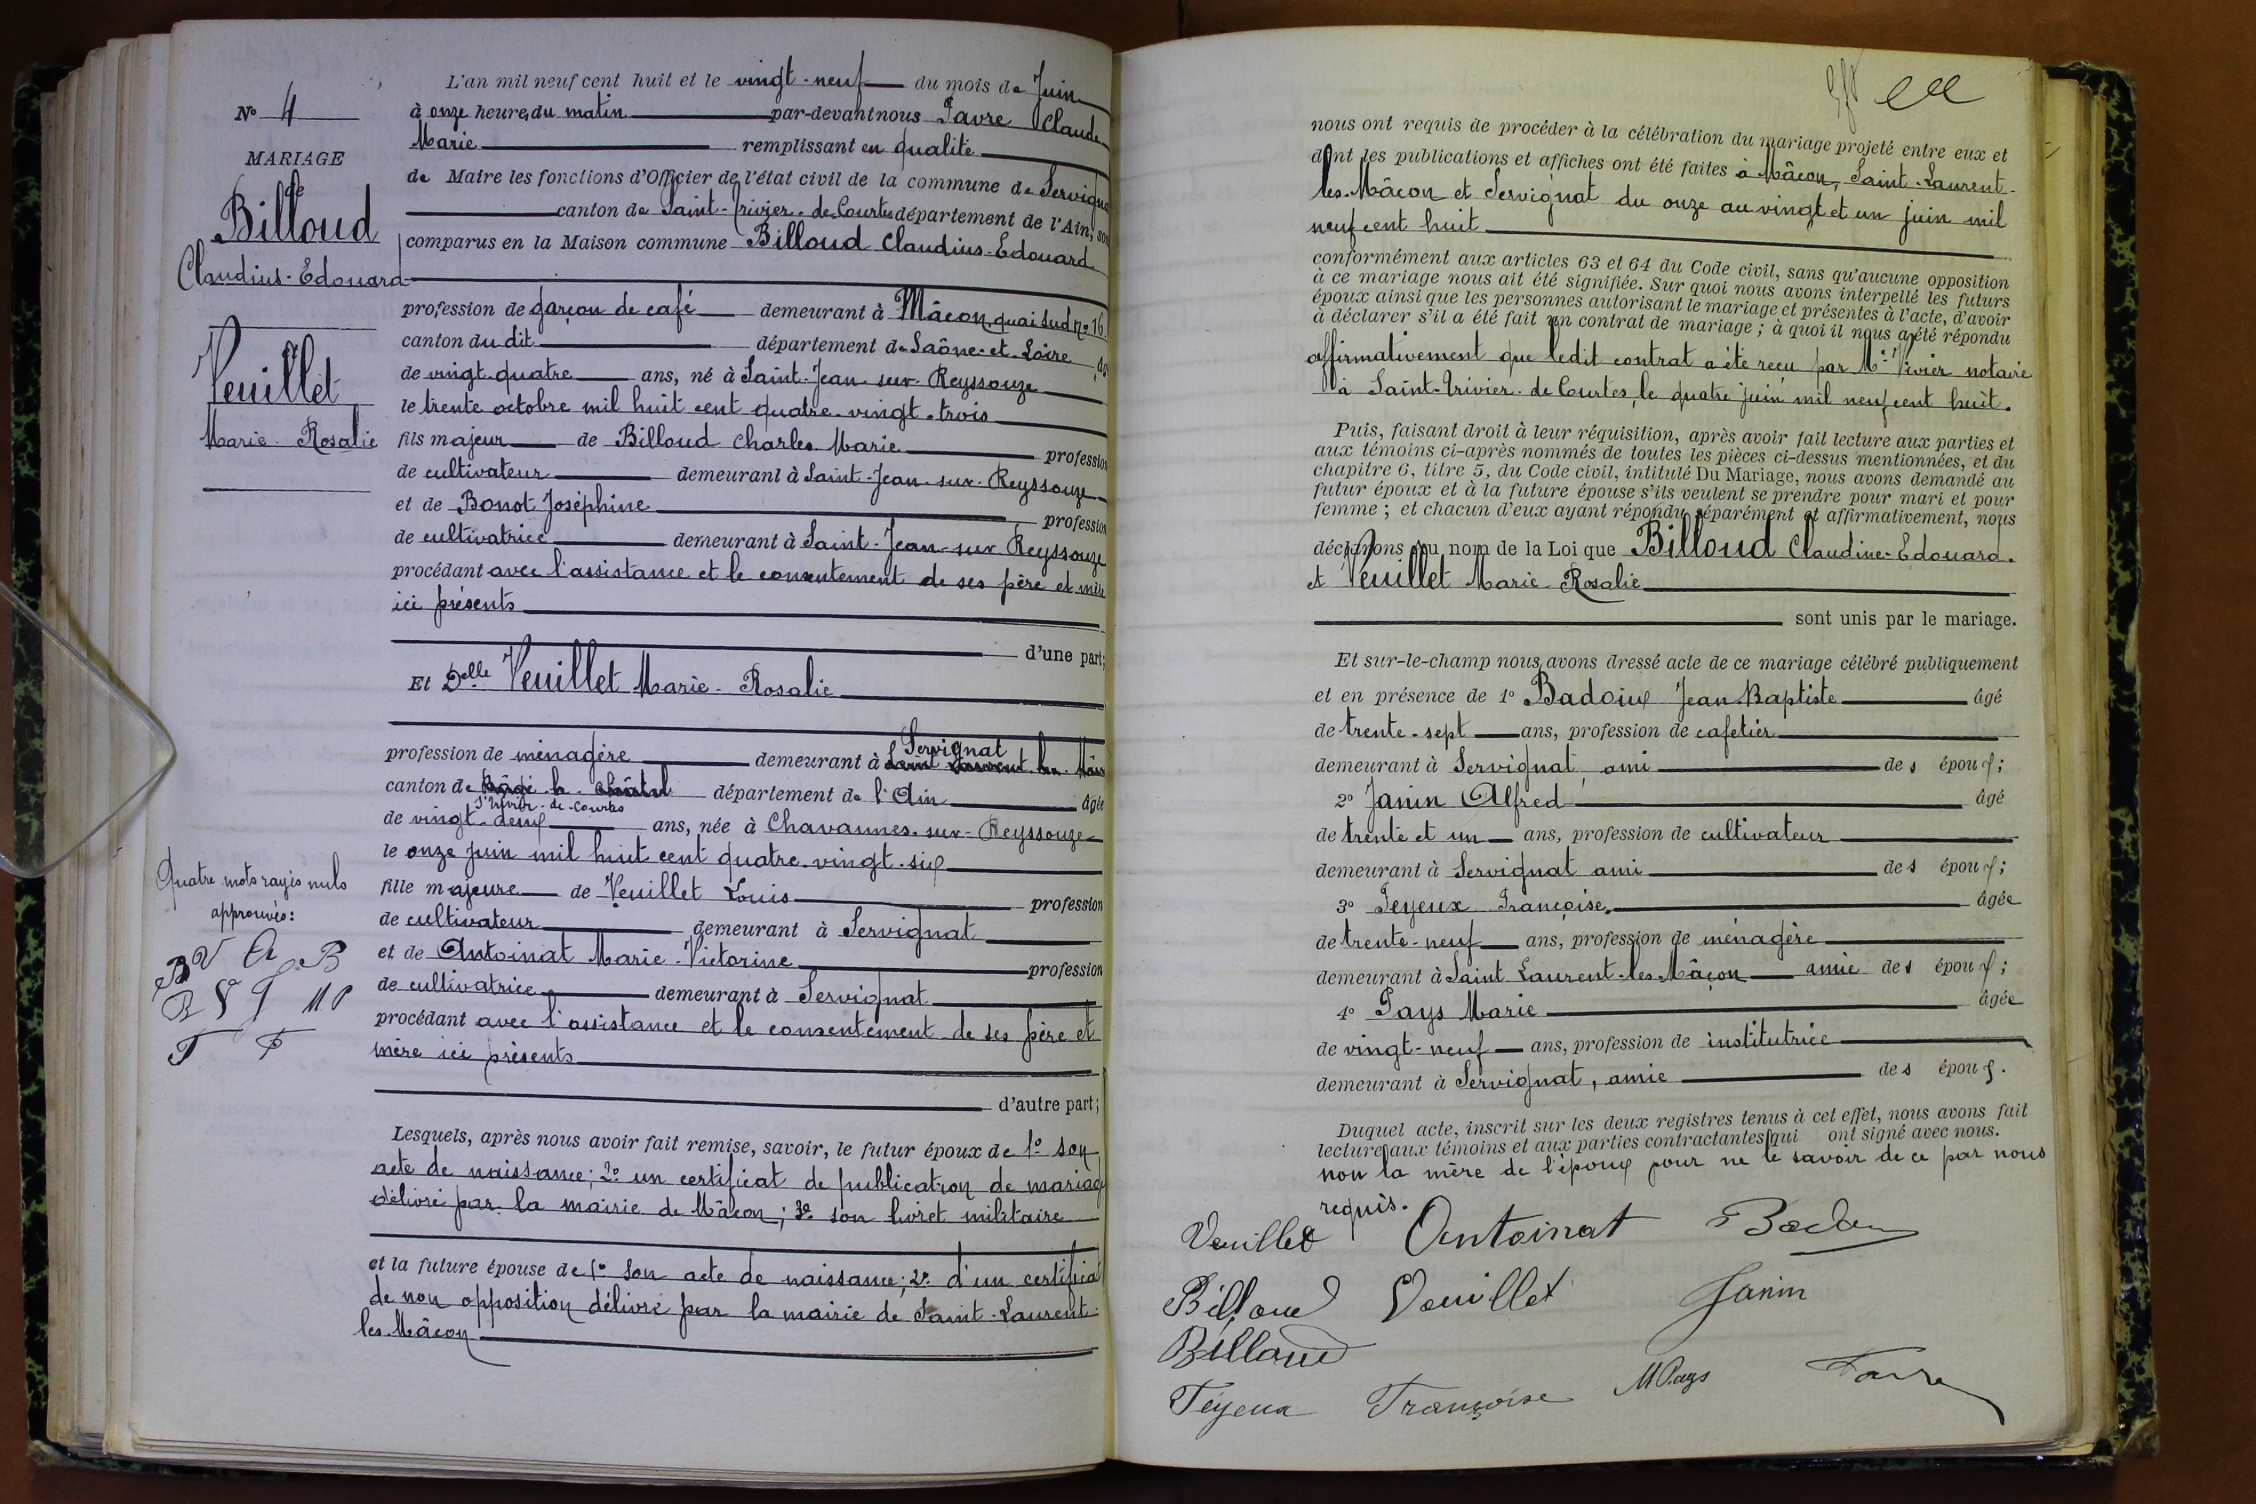 N° 4
MARIAGE
de
Billoud
Claudius-Edouard
et
Veuillet
Marie-Rosalie
Quatre mots rayés nuls
approuvés:
BV A B
B V J MP
T F
L'an mil neuf cent huit et le vingt-neuf du mois de Juin
à onze heures du matin par-devant nous Favre Claude
Marie remplissant en qualité
de Maire les fonctions d'Officier de l'état civil de la commune de Servignat
canton de Saint-Trivier-de-Courtes département de l'Ain, sont
comparus en la Maison commune Billoud Claudius-Edouard
profession de garçon de café demeurant à Mâcon, quai sud n° 16
canton du dit département de Saône-et-Loire âgé
de vingt-quatre ans, né à Saint-Jean-sur-Reyssouze
le trente octobre mil huit cent quatre-vingt-trois
fils majeur de Billoud Charles Marie profession
de cultivateur demeurant à Saint-Jean-sur-Reyssouze
et de Bonot Joséphine profession
de cultivatrice demeurant à Saint-Jean-sur-Reyssouze
procédant avec l'assistance et le consentement de ses père et mère
ici présents
d'une part;
Et Delle Veuillet Marie-Rosalie
Servignat
profession de ménagère demeurant à Saint Laurent-les-Mâcon
canton de Bâgé-le-Châtel département de l'Ain âgée
St Trivier-de-Courtes
de vingt-deux ans, née à Chavannes-sur-Reyssouze
le onze juin mil huit cent quatre-vingt-six
fille majeure de Veuillet Louis profession
de cultivateur demeurant à Servignat
et de Antoinat Marie-Victorine profession
de cultivatrice demeurant à Servignat
procédant avec l'assistance et le consentement de ses père et
mère ici présents
d'autre part;
Lesquels, après nous avoir fait remise, savoir, le futur époux de 1° son
acte de naissance; 2° un certificat de publication de mariage
délivré par la mairie de Mâcon; 3° son livret militaire
et la future épouse de 1° son acte de naissance; 2° d'un certificat
de non opposition délivré par la mairie de Saint-Laurent-
les-Mâcon
nous ont requis de procéder à la célébration du mariage projeté entre eux et
dont les publications et affiches ont été faites à Mâcon, Saint-Laurent-
les-Mâcon et Servignat du onze au vingt et un juin mil
neuf cent huit
conformément aux articles 63 et 64 du Code civil, sans qu'aucune opposition
à ce mariage nous ait été signifiée. Sur quoi nous avons interpellé les futurs
époux ainsi que les personnes autorisant le mariage et présentes à l'acte, d'avoir
à déclarer s'il a été fait un contrat de mariage; à quoi il nous a été répondu
affirmativement que ledit contrat a été reçu par Me Vivier notaire
à Saint-Trivier-de-Courtes, le quatre juin mil neuf cent huit.
Puis, faisant droit à leur réquisition, après avoir fait lecture aux parties et
aux témoins ci-après nommés de toutes les pièces ci-dessus mentionnées, et du
chapitre 6, titre 5, du Code civil, intitulé Du Mariage, nous avons demandé au
futur époux et à la future épouse s'ils veulent se prendre pour mari et pour
femme; et chacun d'eux ayant répondu séparément et affirmativement, nous
déclarons au nom de la Loi que Billoud Claudine-Edouard.
et Veuillet Marie-Rosalie
sont unis par le mariage.
Et sur-le-champ nous avons dressé acte de ce mariage célébré publiquement
et en présence de 1° Badoux Jean-Baptiste âgé
de trente-sept ans, profession de cafetier
demeurant à Servignat, ami des époux;
2° Janin Alfred âgé
de trente et un ans, profession de cultivateur
demeurant à Servignat ami des époux;
3° Teyeux Françoise, âgée
de trente-neuf ans, profession de ménagère
demeurant à Saint Laurent-les-Mâcon amie des époux;
4° Pays Marie âgée
de vingt-neuf ans, profession de institutrice
demeurant à Servignat, amie des époux.
Duquel acte, inscrit sur les deux registres tenus à cet effet, nous avons fait
lecture aux témoins et aux parties contractantes qui ont signé avec nous.
non la mère de l'époux pour ne le savoir de ce par nous
requis.
Veuillet Antoinat
Billoud Veuillet Janin
Billoud
Teyeux Françoise MPays Favre